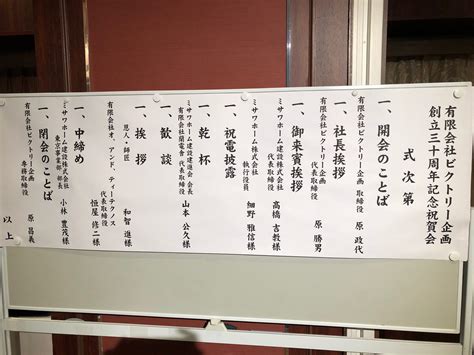 有限会社ビクトリー企画
創立三十周年記念祝賀会
式次第
一、開会のことば
有限会社ビクトリー企画 取締役 原 政代
一、社長挨拶
有限会社ビクトリー企画 代表取締役 原 勝男
一、御来賓挨拶
ミサワホーム建設株式会社 代表取締役 高橋 吉教様
ミサワホーム株式会社 執行役員 細野 雅信様
一、祝電披露
一、乾杯
ミサワホーム建設建進会 会長
有限会社蘭電舎 代表取締役 山本 公久様
一、歓談
一、挨拶
恩人・師匠 和智 進様
有限会社オ、アンド、ティーテクノス 代表取締役 恒屋 修二様
一、中締め
ミサワホーム建設株式会社
東京事業部 部長 小林 豊茂様
一、閉会のことば
有限会社ビクトリー企画 専務取締役 原 昌義
以上